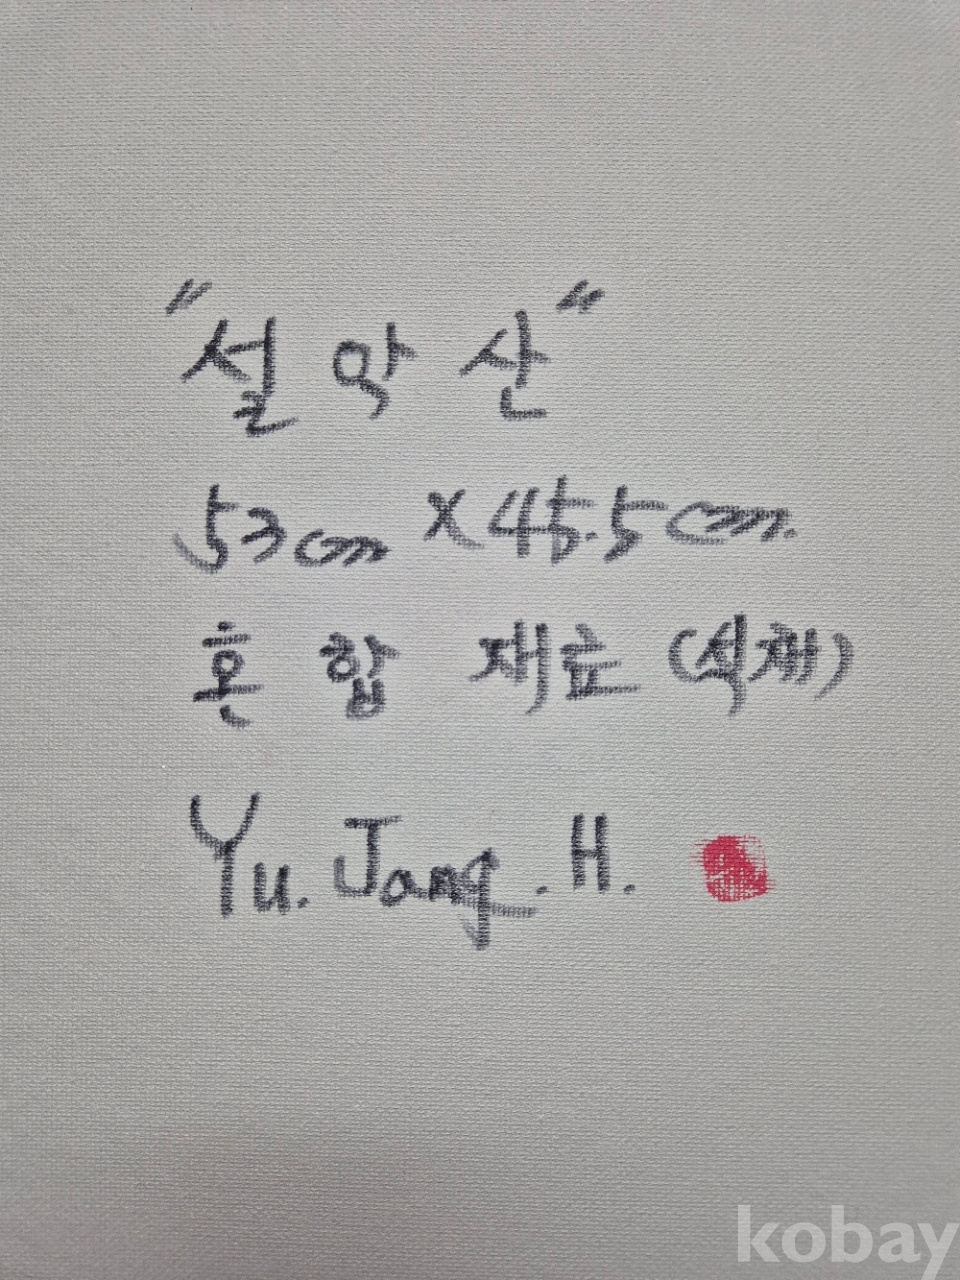 "설악산"
53cm x 45.5cm.
혼합 재료 (석채)
Yu. Jang. H.
kobay